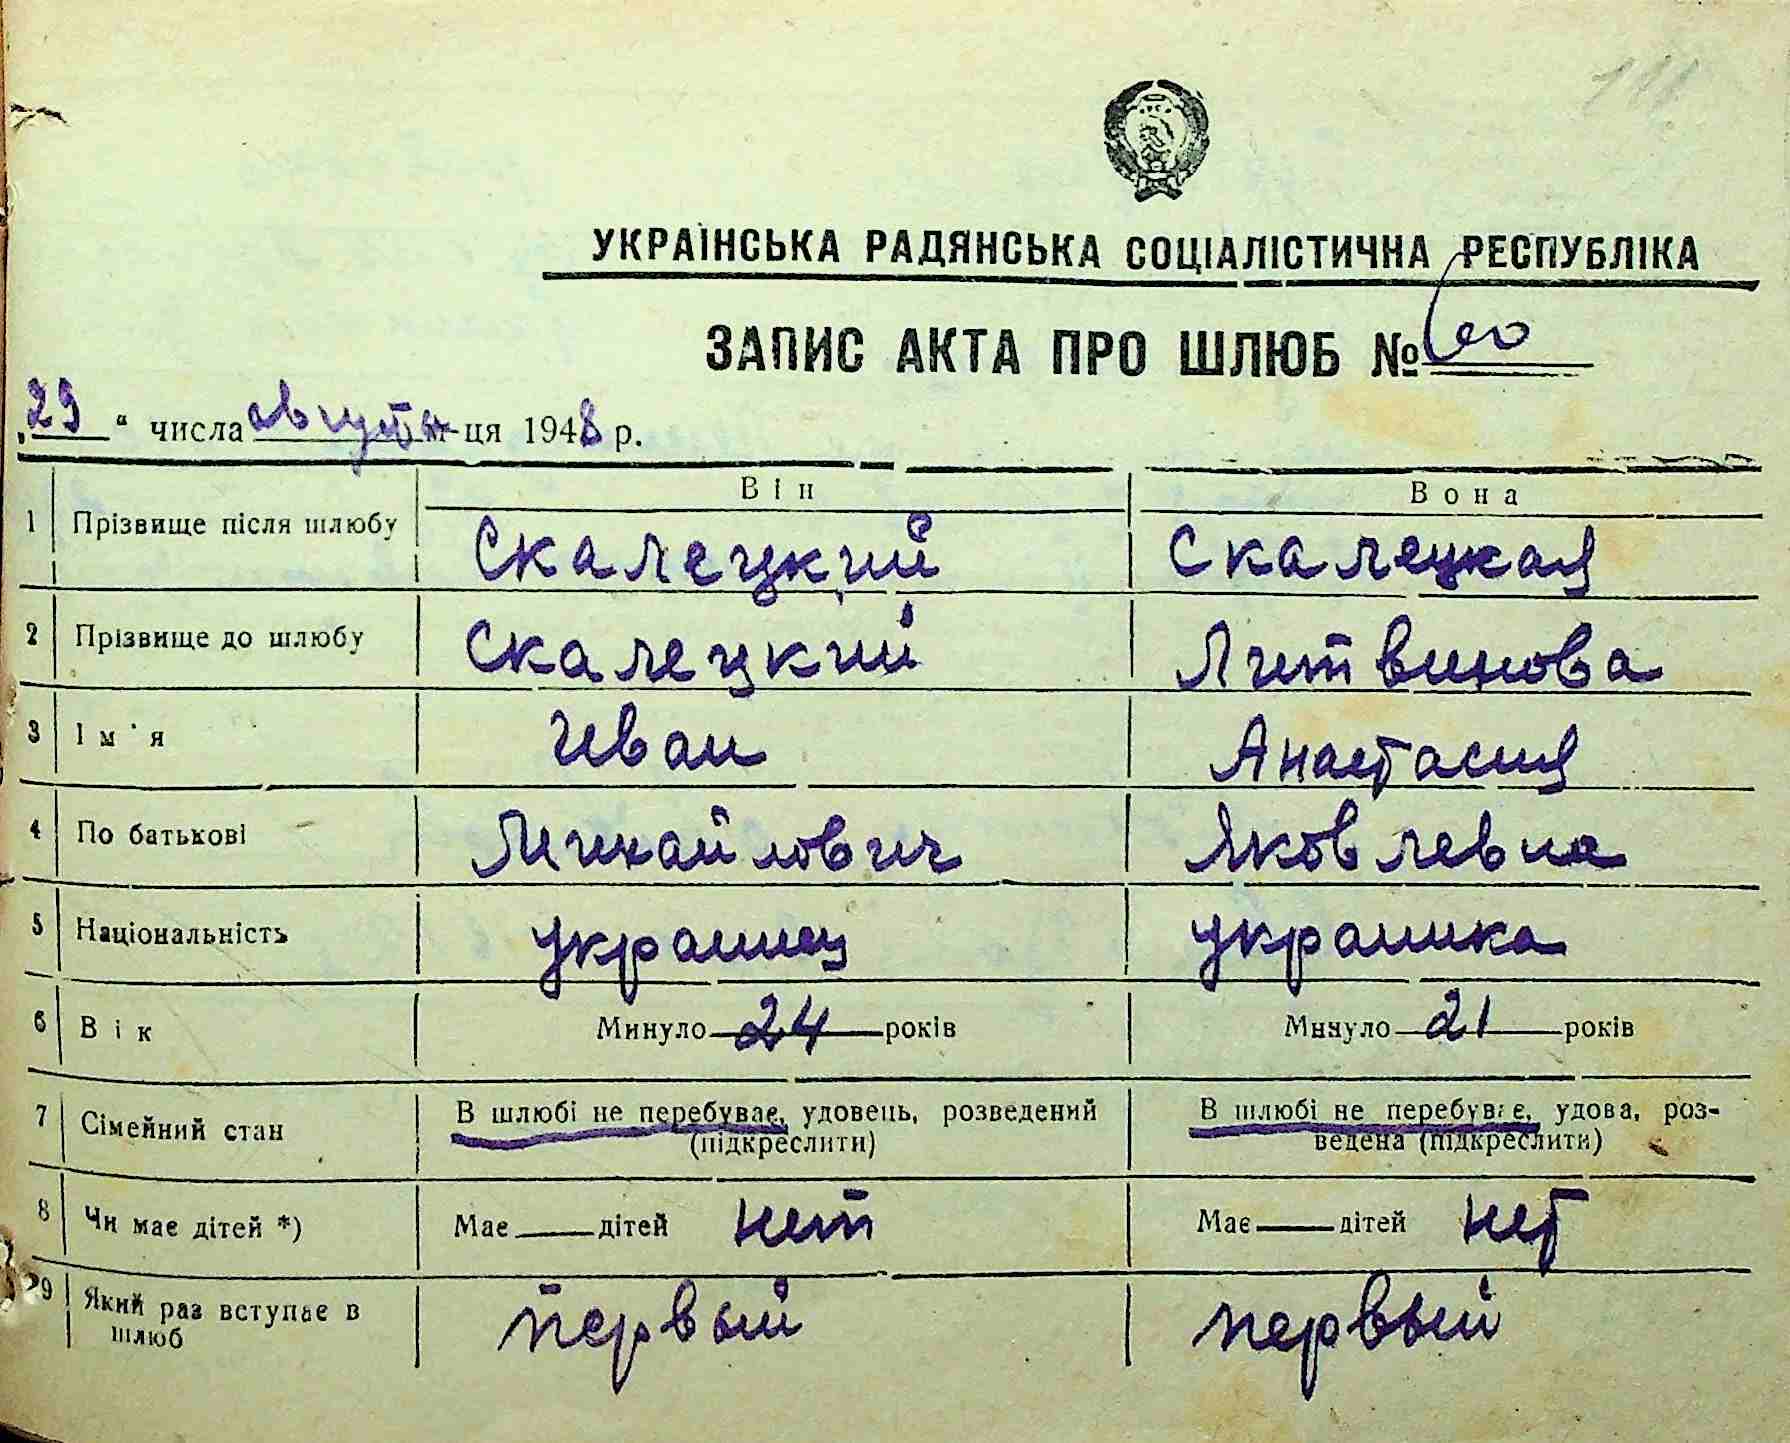 111
УКРАЇНСЬКА РАДЯНСЬКА СОЦІАЛІСТИЧНА РЕСПУБЛІКА
ЗАПИС АКТА ПРО ШЛЮБ № 60
„29“ числа августа м-ця 1948 р.
Він Вона
1 Прізвище після шлюбу Скалецкий Скалецкая
2 Прізвище до шлюбу Скалецкий Литвинова
3 Ім'я Иван Анастасия
4 По батькові Михайлович Яковлевна
5 Національність украинец украинка
6 Вік Минуло 24 років Минуло 21 років
7 Сімейний стан В шлюбі не перебуває, удовець, розведений В шлюбі не перебуває, удова, роз-
(підкреслити) ведена (підкреслити)
8 Чи має дітей *) Має дітей нет Має дітей нет
9 Який раз вступає в первый первый
шлюб